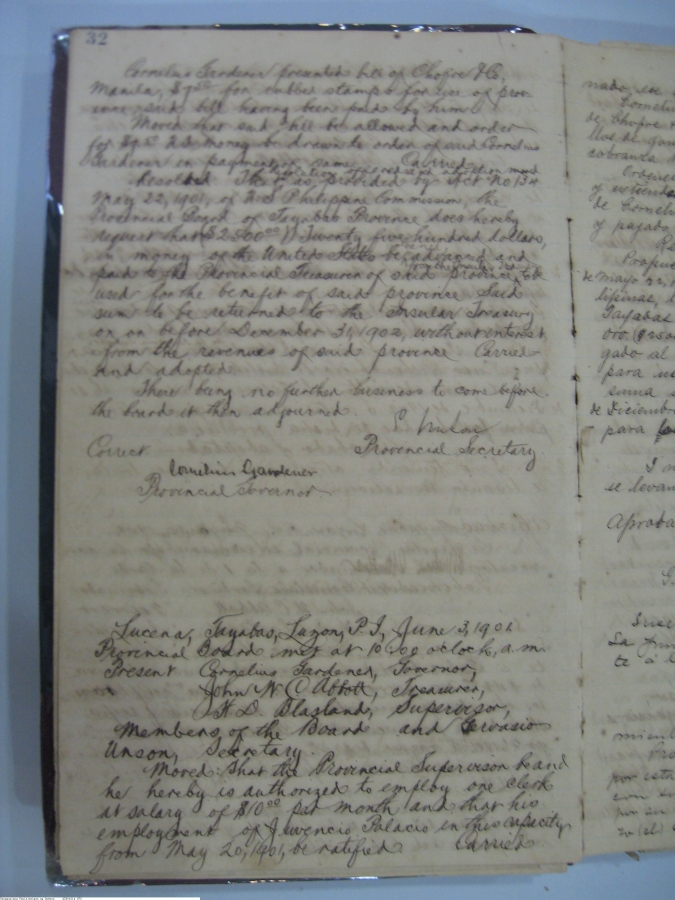 32
Cornelius Gardener presented bill of Chofre & Co,
Manila, for rubber stamps for use of prov-
ince said bill having been paid by him
Moved that said bill be allowed and order
for U.S. money be drawn to order of said Cornelius
Gardener in payment of same. Carried
Resolved That as provided by Act No 134
May 22, 1901, of U.S Philippine Commission, the
Provincial Board of Tayabas Province does hereby
request that $2500.00 Twenty five hundred dollars,
in money of the United States be advanced and
paid to the Provincial Treasurer of said province to be
used for the benefit of said province Said
sum to be returned to the Insular Treasury
on or before December 31, 1902, without interest
from the revenues of said province Carried
and adopted
There being no further business to come before
the board it then adjourned
Correct Provincial Secretary
Cornelius Gardener
Provincial Governor
Lucena, Tayabas, Luzon, P.I, June 3, 1901
Provincial Board met at 10.00 oclock, a.m.
Present Cornelius Gardener, Governor,
John N C Abbott, Treasurer,
H. D. Blasland, Supervisor,
Members of the Board and Gervasio
Unson, Secretary.
Moved: That the Provincial Supervisor be and
he hereby is authorized to employ one clerk
at salary of $10.00 per month and that his
employment of Juvencio Palacio in this capacity
from May 20, 1901, be ratified Carried
de Chofre
cobranza
y
de Corneli
y pagado
de Mayo 22, 1
Tayabas
gado al
para us
suma
de Diciembre
para
se levan
Aproba
te
por esta